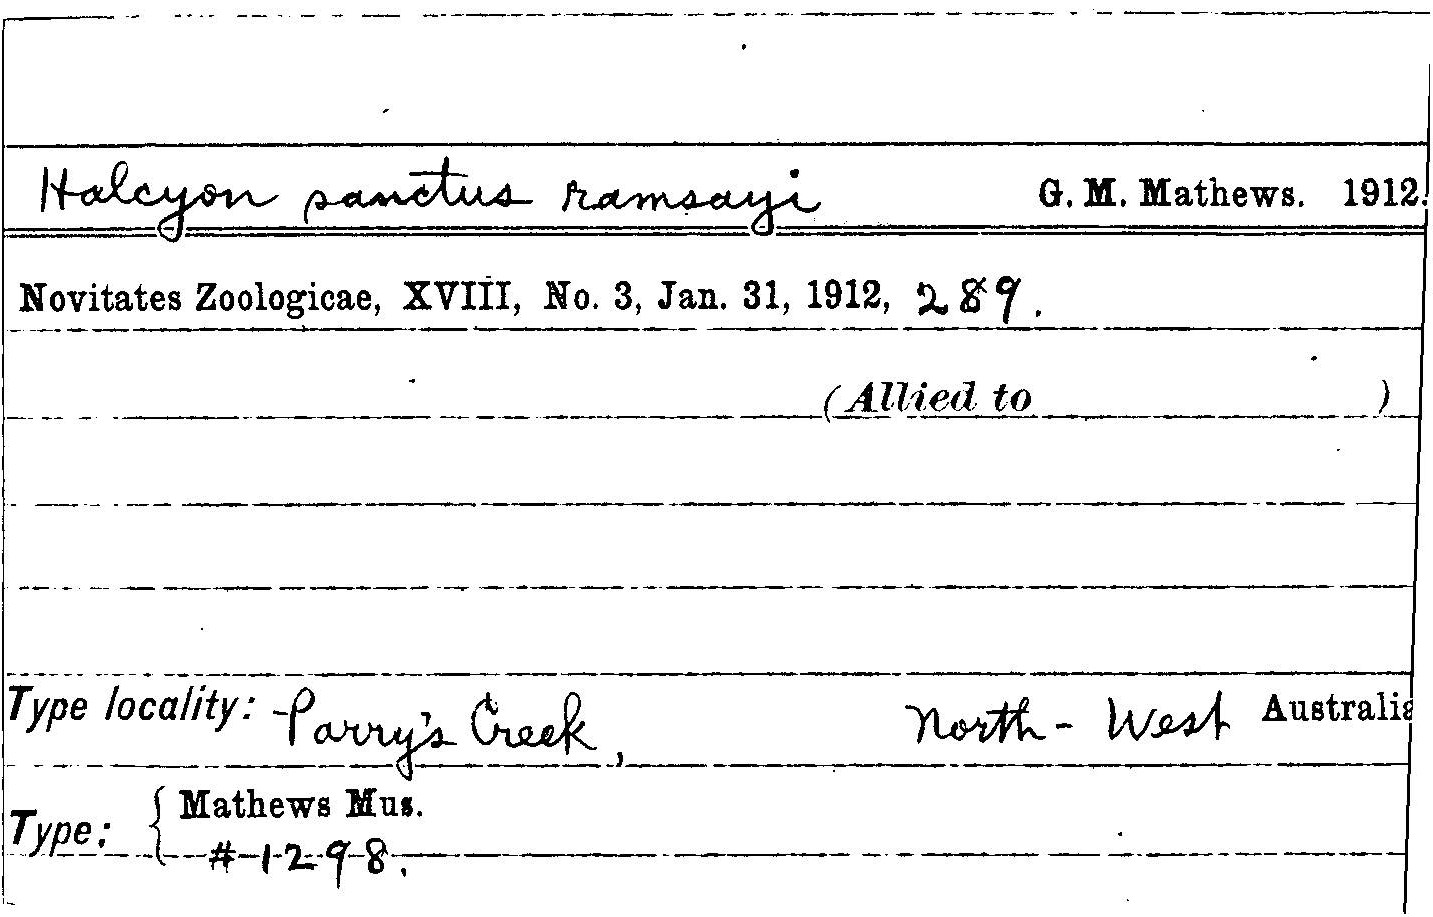 Halcyon sanctus ramsayi G. M. Mathews. 1912.
Novitates Zoologicae, XVIII, No. 3, Jan. 31, 1912, 289.
(Allied to )
Type locality: Parry's Creek, North-West Australia
Type: { Mathews Mus.
#1298.